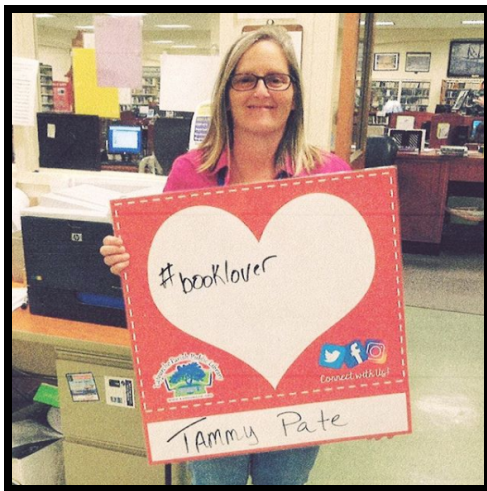 #booklover
Connect with Us!
TAMMY Pate